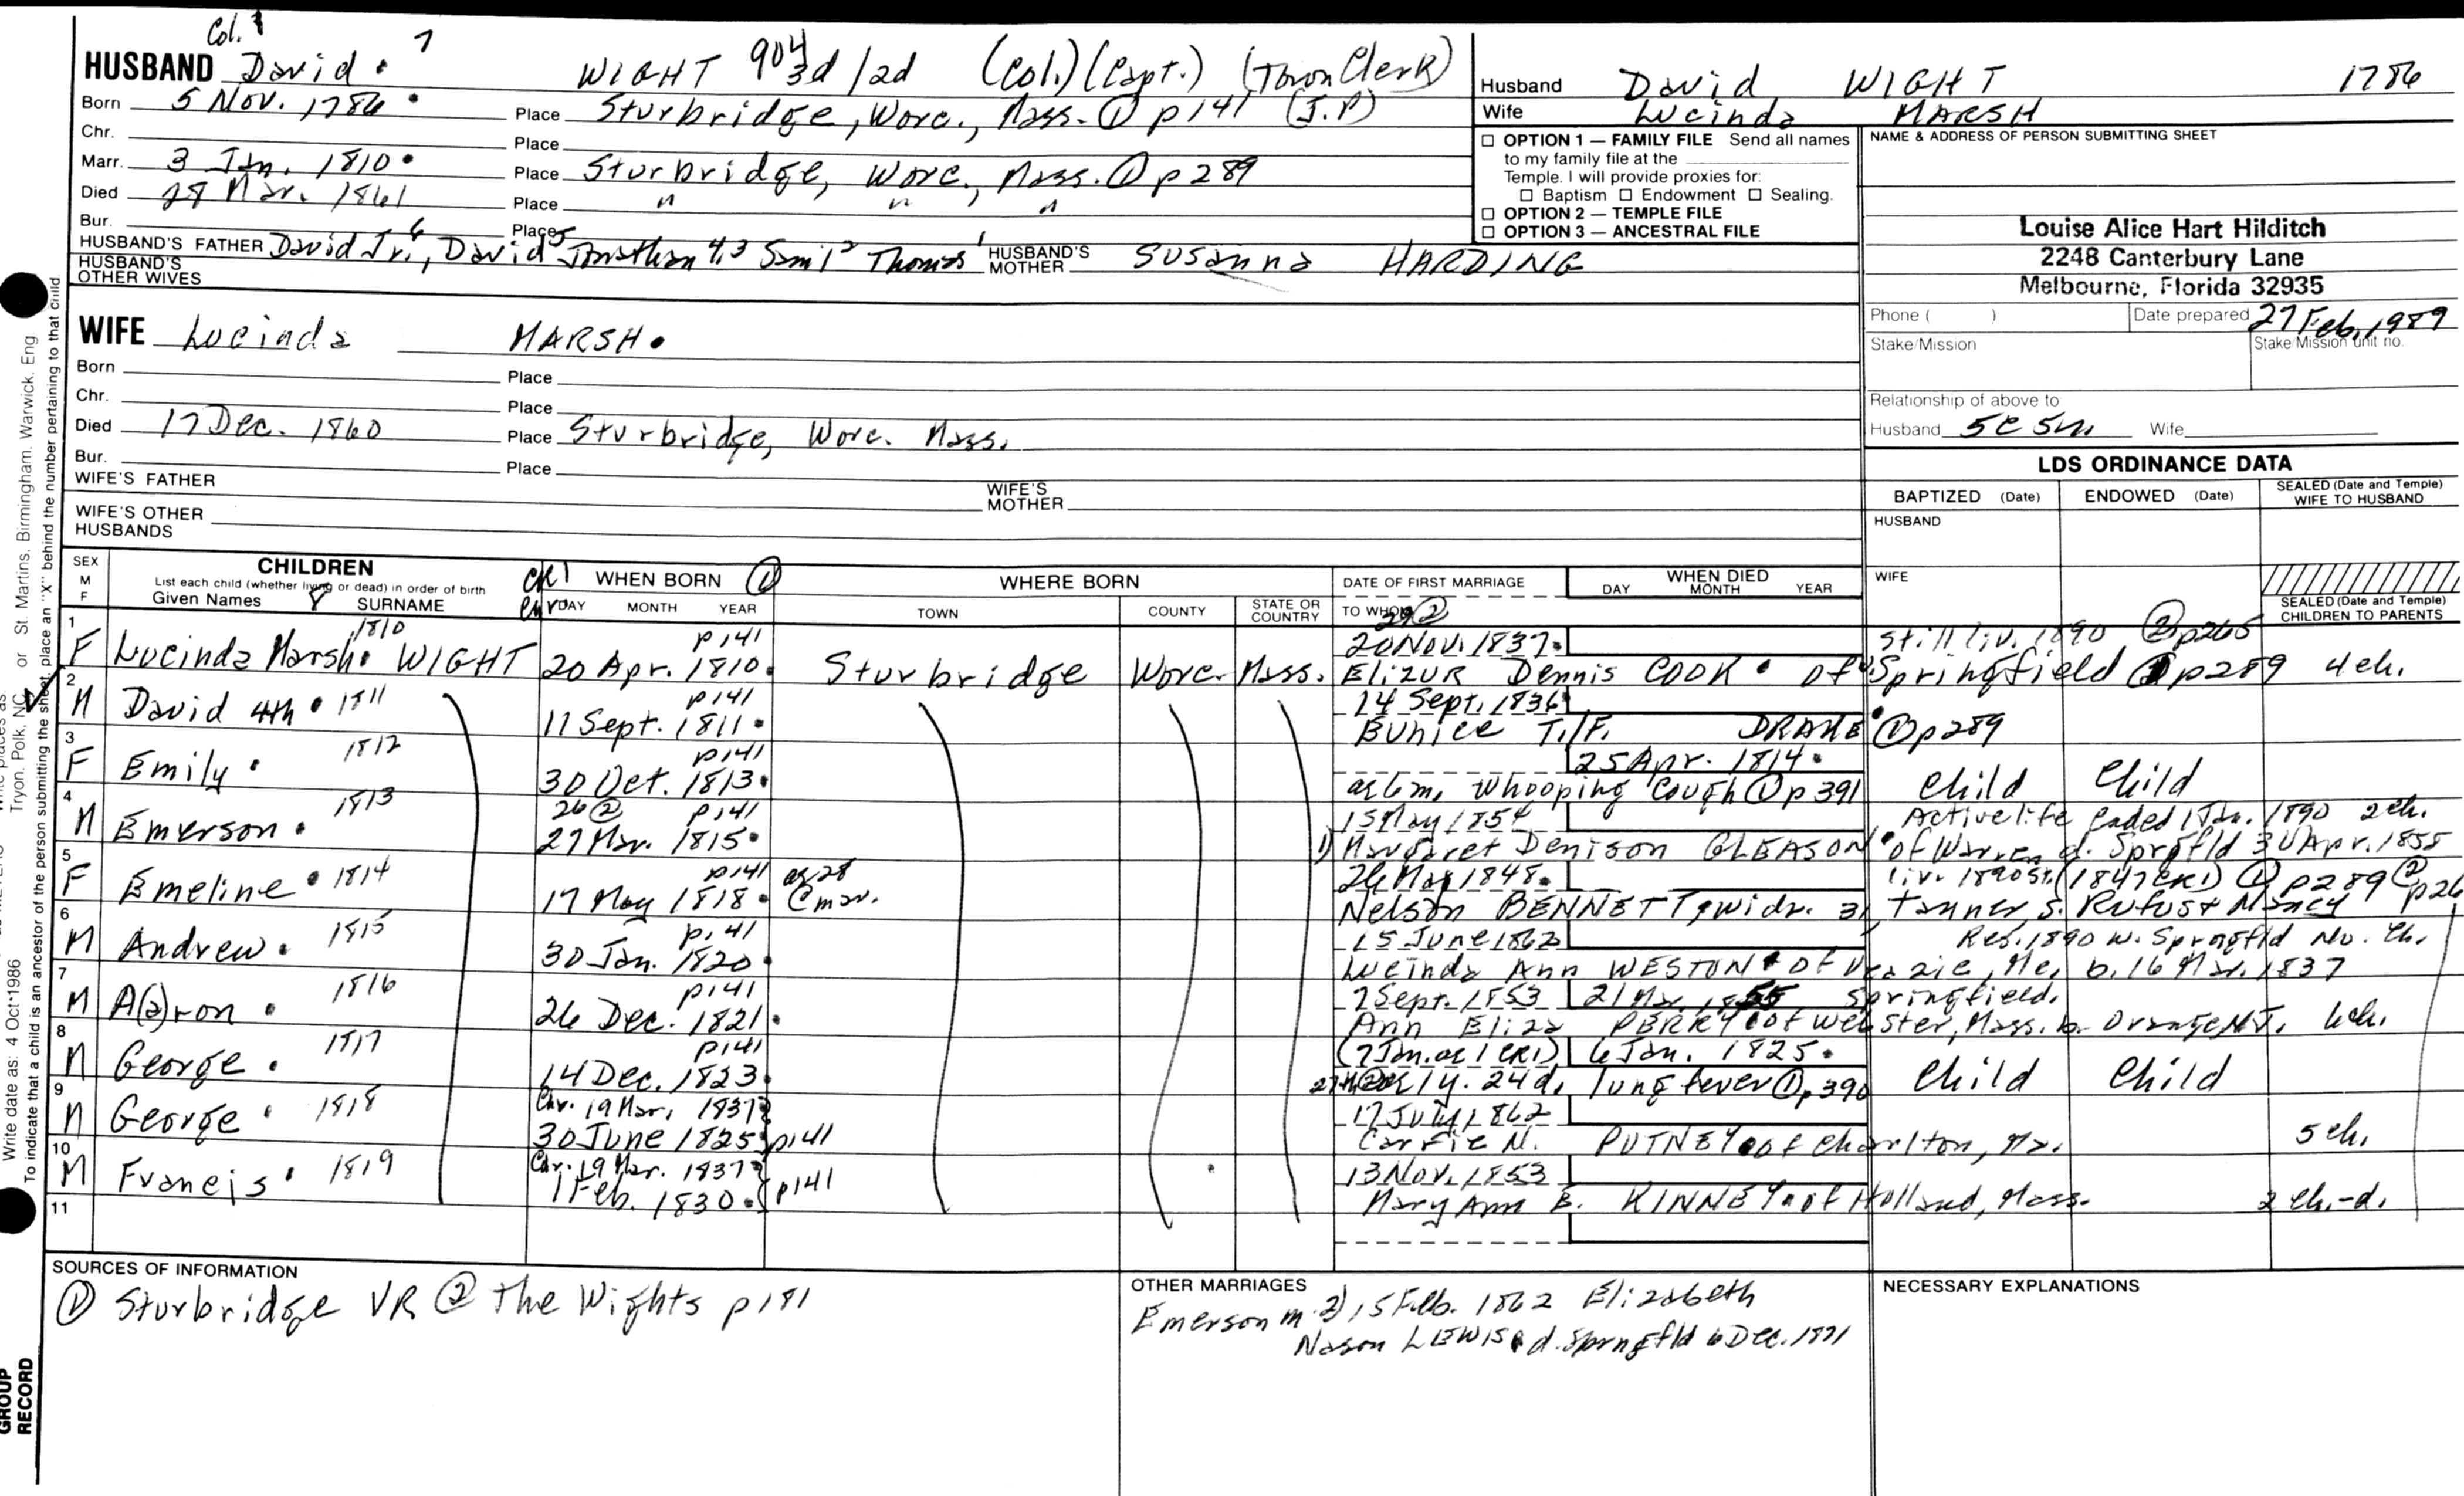 Col.
HUSBAND David 7 WIGHT 904 3d/2d (Col.) (Capt.) (Town Clerk)
Born 5 Nov. 1786 Place Sturbridge, Worc., Mass. ① p141 (J.P)
Chr. Place
Marr. 3 Jan. 1810 Place Sturbridge, Worc., Mass. ① p289
Died 28 Mar. 1861 Place " " "
Bur. Place
HUSBAND'S FATHER David Jr. 6, David 5 Jonathan 4,3 Saml 2 Thomas 1 HUSBAND'S MOTHER Susanna HARDING
HUSBAND'S OTHER WIVES
WIFE Lucinda MARSH
Born Place
Chr. Place
Died 17 Dec. 1860 Place Sturbridge, Worc. Mass.
Bur. Place
WIFE'S FATHER WIFE'S MOTHER
WIFE'S OTHER HUSBANDS
Husband David WIGHT 1786
Wife Lucinda MARSH
☐ OPTION 1 — FAMILY FILE Send all names
to my family file at the
Temple. I will provide proxies for:
☐ Baptism ☐ Endowment ☐ Sealing.
☐ OPTION 2 — TEMPLE FILE
☐ OPTION 3 — ANCESTRAL FILE
NAME & ADDRESS OF PERSON SUBMITTING SHEET
Louise Alice Hart Hilditch
2248 Canterbury Lane
Melbourne, Florida 32935
Phone ( ) Date prepared 27 Feb. 1989
Stake/Mission Stake/Mission unit no.
Relationship of above to
Husband 5c 5r. Wife
LDS ORDINANCE DATA
BAPTIZED (Date) ENDOWED (Date) SEALED (Date and Temple) WIFE TO HUSBAND
HUSBAND
WIFE
SEALED (Date and Temple) CHILDREN TO PARENTS
SEX M F
CHILDREN
List each child (whether living or dead) in order of birth
Given Names 8 SURNAME
CR1 WHEN BORN ①
DAY MONTH YEAR
WHERE BORN
TOWN COUNTY STATE OR COUNTRY
DATE OF FIRST MARRIAGE
TO WHOM
WHEN DIED
DAY MONTH YEAR
29②
1 1810 p141 20 Nov. 1837 still liv. 1890 ② p265
F Lucinda Marsh WIGHT 20 Apr. 1810 Sturbridge Worc. Mass. Elizur Dennis COOK of Springfield ① p289 4 ch.
2 1811 p141 14 Sept. 1836
M David 4th 11 Sept. 1811 Eunice T./F. DRAKE ① p289
3 1812 p141 25 Apr. 1814
F Emily 30 Oct. 1813 ae 6m. Whooping Cough ① p391 Child Child
4 1813 26② p141 15 May 1854 Active life ended 1 Jan. 1890 2 ch.
M Emerson 27 Mar. 1815 1) Margaret Denison GLEASON of Warren d. Sprgfld 30 Apr. 1855
5 1814 p141 ag 28 26 May 1848 liv. 1890 St. (1847 CR1) ① p289 ② p26
F Emeline 17 May 1818 @ mar. Nelson BENNETT, widr. 31, tanner, s. Rufus & Nancy
6 1815 p141 15 June 1862 Res. 1890 W. Sprngfld No. Ch.
M Andrew 30 Jan. 1820 Lucinda Ann WESTON of Veazie, Me. b. 16 Mar. 1837
7 1816 p141 7 Sept. 1853 21 1855 Springfield.
M A(a)ron 26 Dec. 1821 Ann Eliza PERRY of Webster, Mass. b. Orange NJ. 6 ch.
8 1817 p141 (7 Jan. ae 1 CR1) 6 Jan. 1825
M George 14 Dec. 1823 1y. 24d. lung fever ① p390 Child Child
9 1818 Chr. 19 Mar. 1837? 17 July 1862
M George 30 June 1825 p141 Carrie M. PUTNEY of Charlton, Ma. 5 ch.
10 1819 Chr. 19 Mar. 1837? 13 Nov. 1853
M Francis 1 Feb. 1830 p141 Mary Ann B. KINNEY of Holland, Mass. 2 ch.-d.
11
SOURCES OF INFORMATION
① Sturbridge VR ② The Wights p181
OTHER MARRIAGES
Emerson m. 2) 15 Feb. 1862 Elizabeth
Nason LEWIS d. Sprngfld 6 Dec. 1871
NECESSARY EXPLANATIONS
Write date as: 4 Oct 1986
Tryon, Polk, NC or St. Martins, Birmingham, Warwick, Eng
To indicate that a child is an ancestor of the person submitting the sheet, place an "X" behind the number pertaining to that child
GROUP
RECORD